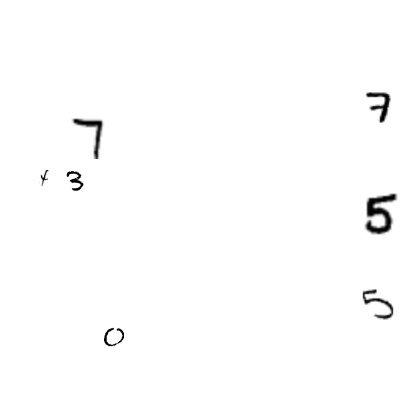 7
7
+ 3
5
5
0